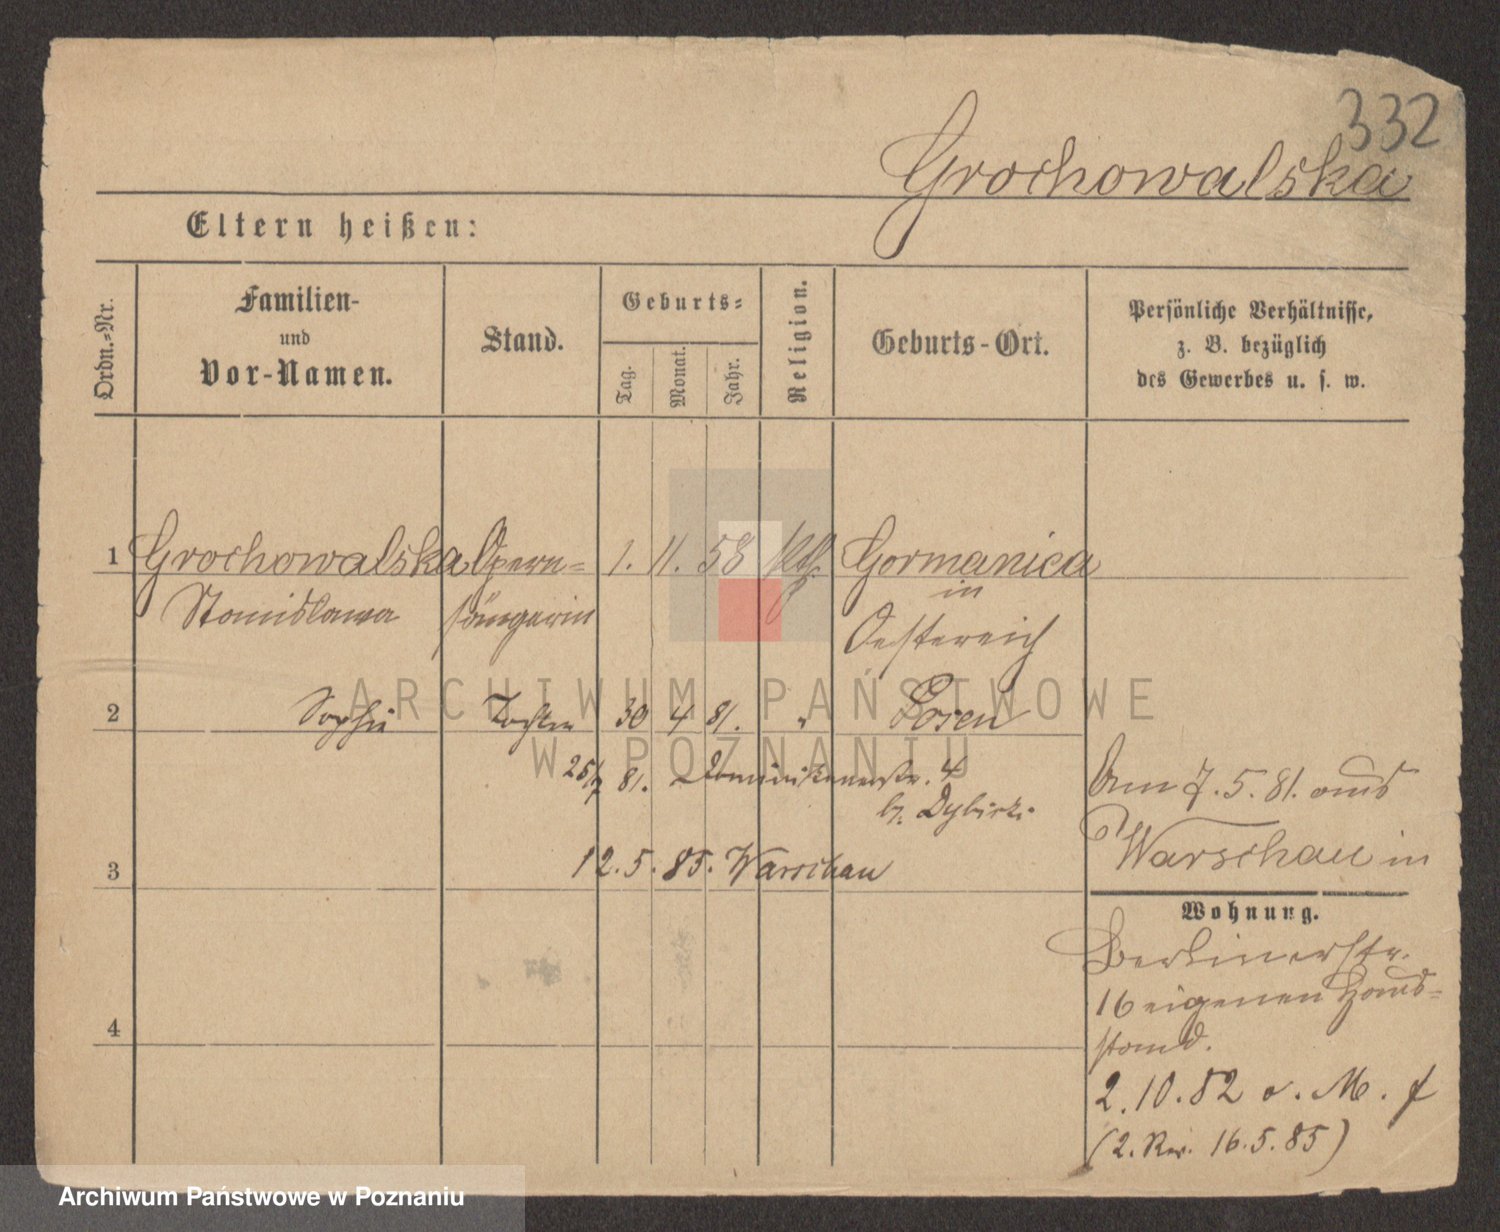 332
Grochowalska
Eltern heißen:
Ordn.-Nr.
Familien-
und
Vor-Namen.
Stand.
Geburts-
Tag.
Monat.
Jahr.
Religion.
Geburts-Ort.
Persönliche Verhältnisse,
z. B. bezüglich
des Gewerbes u. s. w.
1 Grochowalska Opern- 1. 11. 58 Kth. Gormanica
in
Stanislawa sängerin Oestereich
2 Sophie Tochter 30 4 81. " Posen
25/7 81. Dominikanerstr. 4
b. Dybizki
Am 7.5.81. aus
Warschau in
3 12.5.85. Warschau
Wohnung.
Berlinerstr.
16 eigenen Haus-
stand.
4
2.10.82 o. M. f
(2. Rev. 16.5.85)
ARCHIWUM PAŃSTWOWE
W POZNANIU
Archiwum Państwowe w Poznaniu